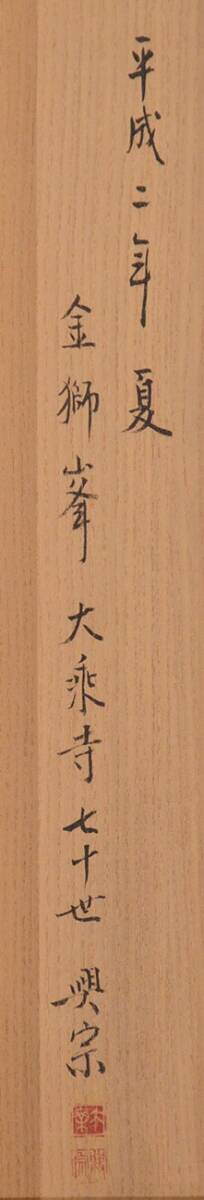 平成二年夏
金獅峯 大乘寺七十世 興宗